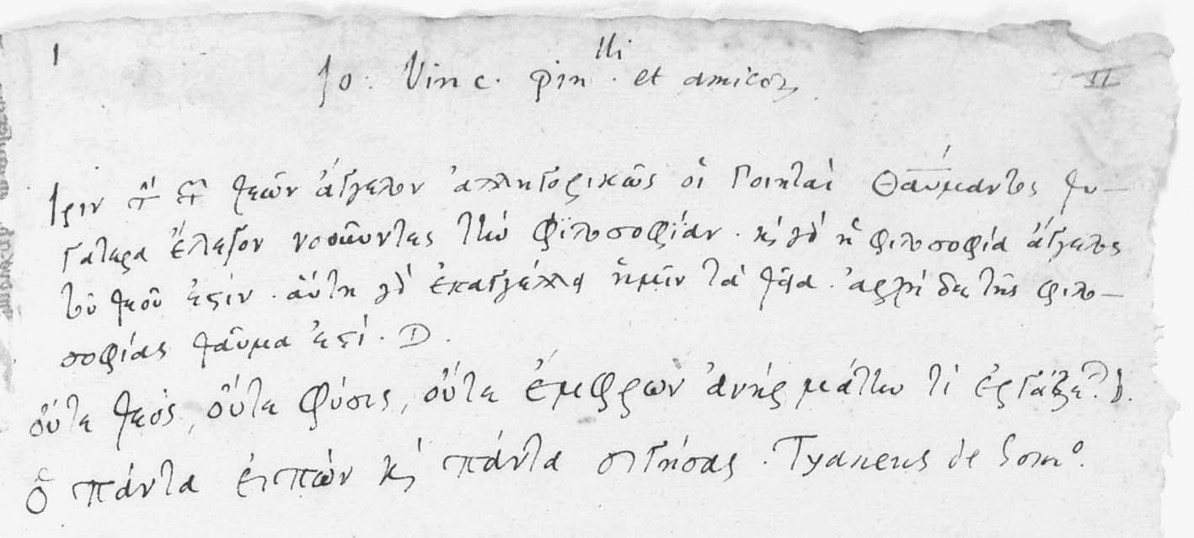 1
Jo. Vinc. Pin^lli. et amicoꝝ
II
Ἶριν τὴν τῶν θεῶν ἄγγελον ἀλληγορικῶς οἱ ποιηταὶ Θαύμαντος θυ-
γατέρα ἔλεγον νοοῦντες τὴν φιλοσοφίαν. κ̀ γδ̀ ἡ φιλοσοφία ἄγγελος
τοῦ θεοῦ ἐϛιν. αὕτη γδ̀ ἐπαγγέλλει ἡμῖν τὰ θεῖα. ἀρχὴ δὲ τῆς φιλο-
σοφίας θαῦμα ἐϛί. D.
οὔτε θεὸς, οὔτε φύσις, οὔτε ἔμφρων ἀνὴρ μάτην τί ἐργάζε^).
ὁ πάντα εἰπὼν κ̀ πάντα σιγήσας. Tyaneus de Som^o.